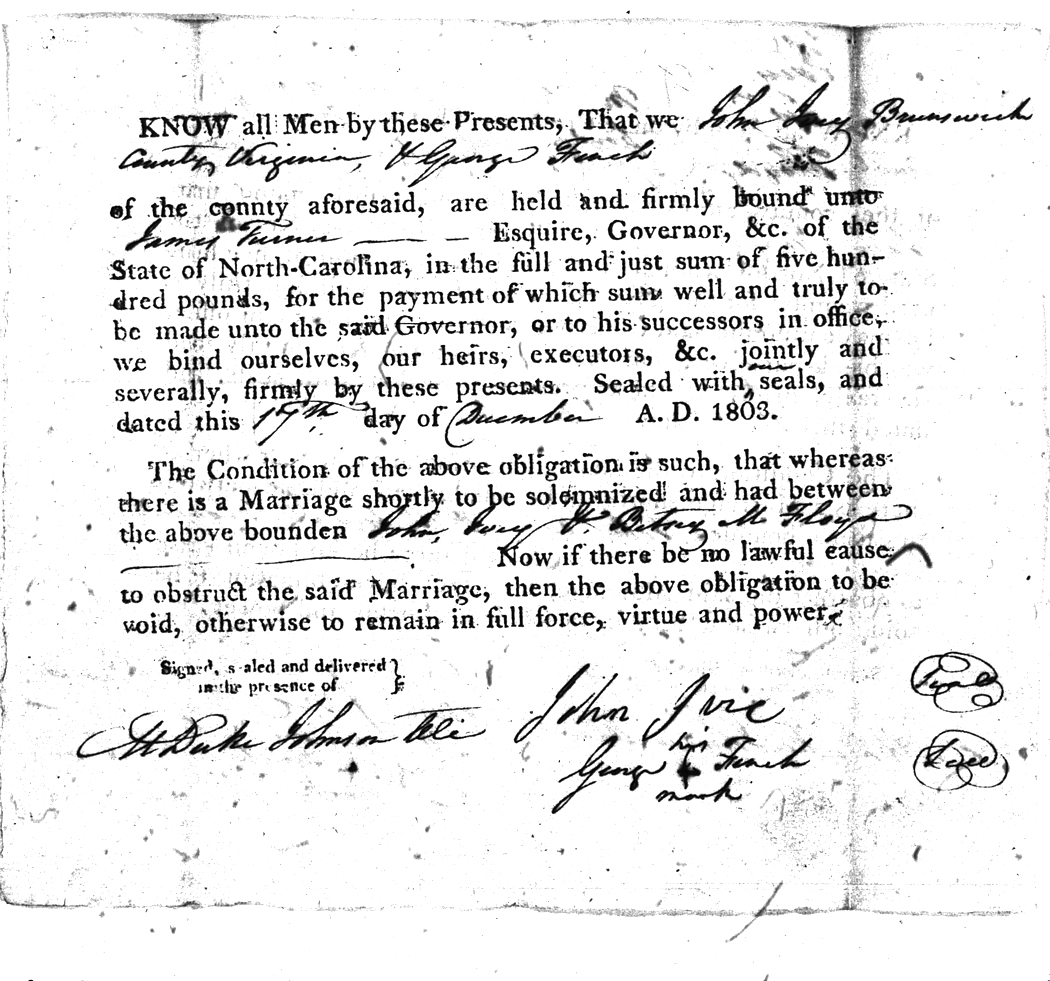 KNOW all Men by these Presents, That we John Ivey Brunswick
County, Virginia, & George Finch
of the county aforesaid, are held and firmly bound unto
James Turner Esquire, Governor, &c. of the
State of North-Carolina, in the full and just sum of five hun-
dred pounds, for the payment of which sum well and truly to
be made unto the said Governor, or to his successors in office,
we bind ourselves, our heirs, executors, &c. jointly and
severally, firmly by these presents. Sealed with our seals, and
dated this 17th day of December A. D. 1803.
The Condition of the above obligation is such, that whereas
there is a Marriage shortly to be solemnized and had between
the above bounden John Ivey & Betsey M Floyd
Now if there be no lawful cause
to obstruct the said Marriage, then the above obligation to be
void, otherwise to remain in full force, virtue and power.
Signed, sealed and delivered
in the presence of
M Duke Johnson John Ivie Seal
George his Finch Seal
mark